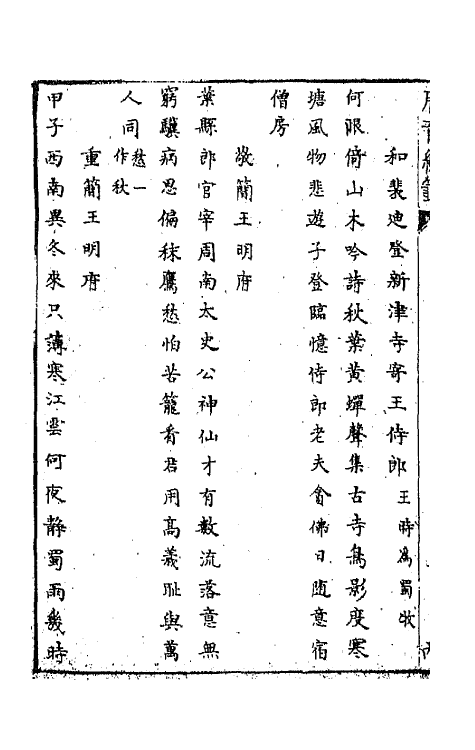 和裴迪登新津寺寄王侍郎王時為蜀牧
何限倚山木吟詩秋葉黃蟬聲集古寺鳥影度寒
塘風物悲遊子登臨憶侍郎老夫貪佛日随意宿
僧房
敬簡王明府
葉縣郎官宰周南太史公神仙才有數流落意無
窮驥病思偏秣鷹愁怕苦籠看君用高義耻與萬
人同愁一作秋
重簡王明府
甲子西南異冬來只薄寒江雲何夜静蜀雨幾時